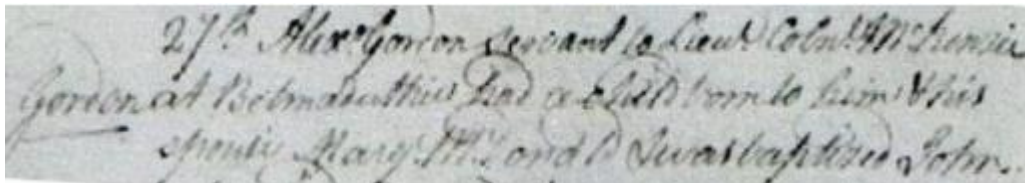 27th Alexr Gordon servant to Lieut Coln McKenzie
Gordon at Belmaduthie had a child born to him & his
spouse Mary McDonald & was baptized John.